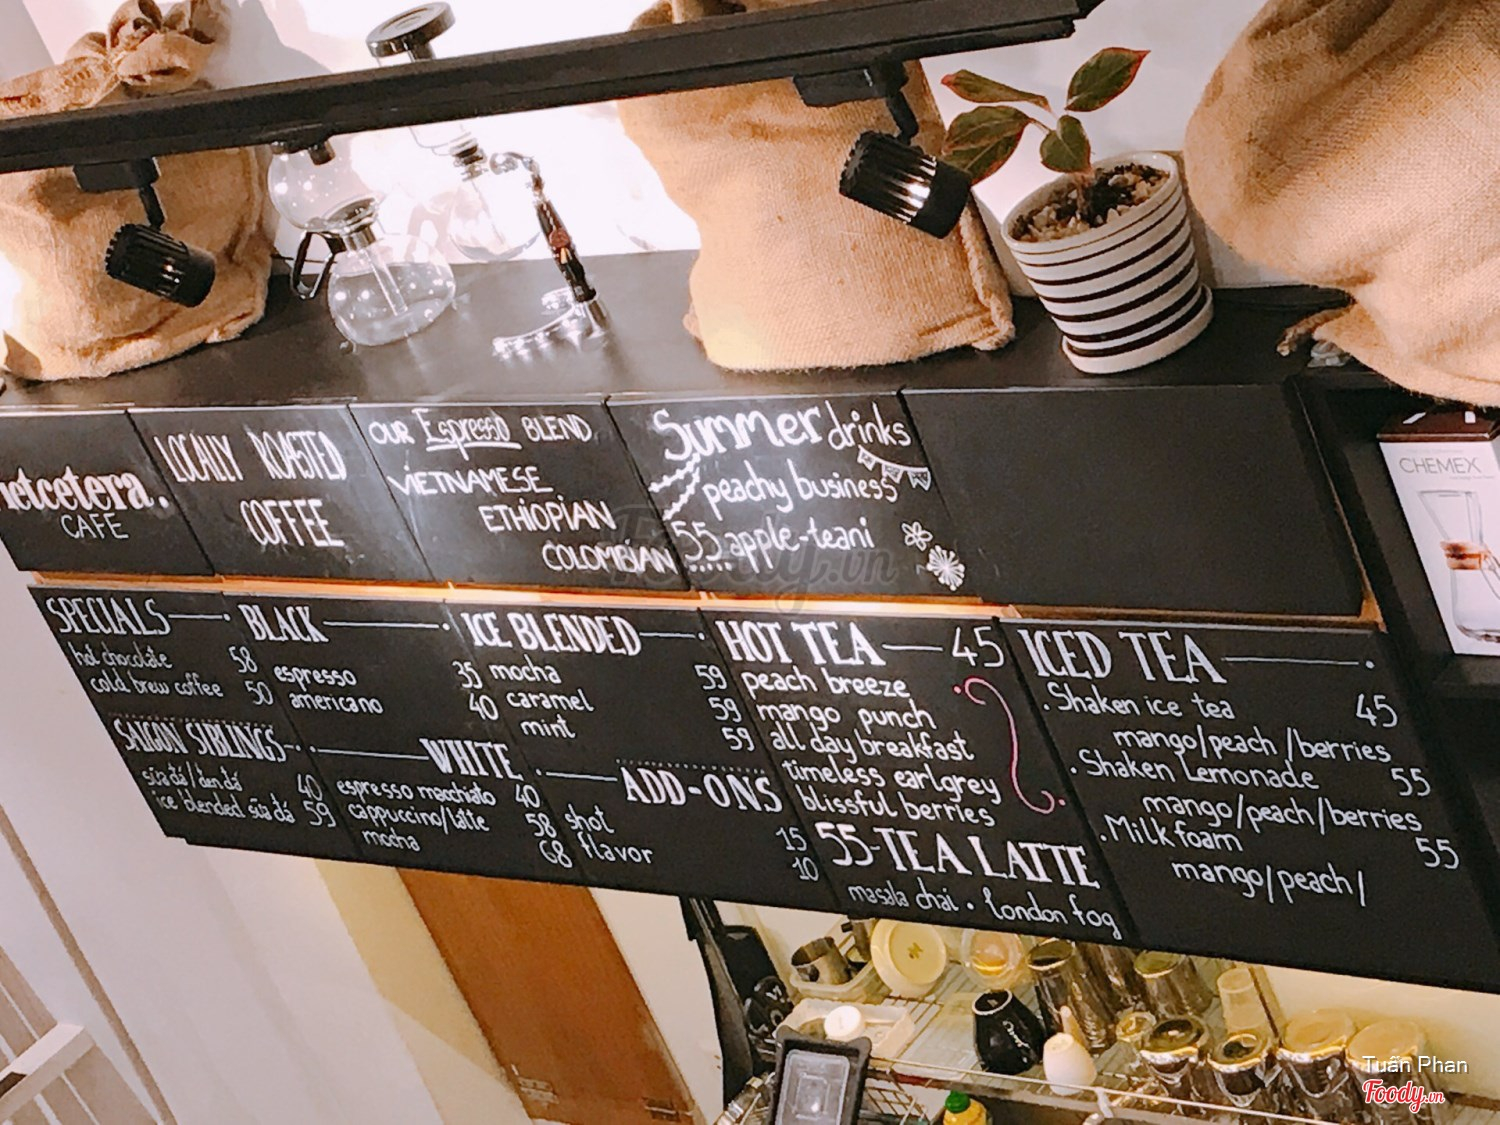 netcetera.
CAFÉ
LOCALLY ROASTED
COFFEE
OUR Espresso BLEND
VIETNAMESE
ETHIOPIAN
COLOMBIAN
Summer drinks
peachy business
55 apple-teani
SPECIALS
hot chocolate 58
cold brew coffee 50
SAIGON SIBLINGS
sữa đá / đen đá 40
ice blended sữa đá 59
BLACK
espresso 35
americano 40
WHITE
espresso macchiato 40
cappuccino/latte 58
mocha 68
ICE BLENDED
mocha 59
caramel 59
mint 59
ADD-ONS
shot 15
flavor 10
HOT TEA 45
peach breeze
mango punch
all day breakfast
timeless earlgrey
blissful berries
55-TEA LATTE
masala chai • london fog
ICED TEA
. Shaken ice tea 45
mango/peach/berries
. Shaken Lemonade 55
mango/peach/berries
. Milk foam 55
mango/peach/
CHEMEX
Foody.vn
Tuấn Phan
Foody.vn